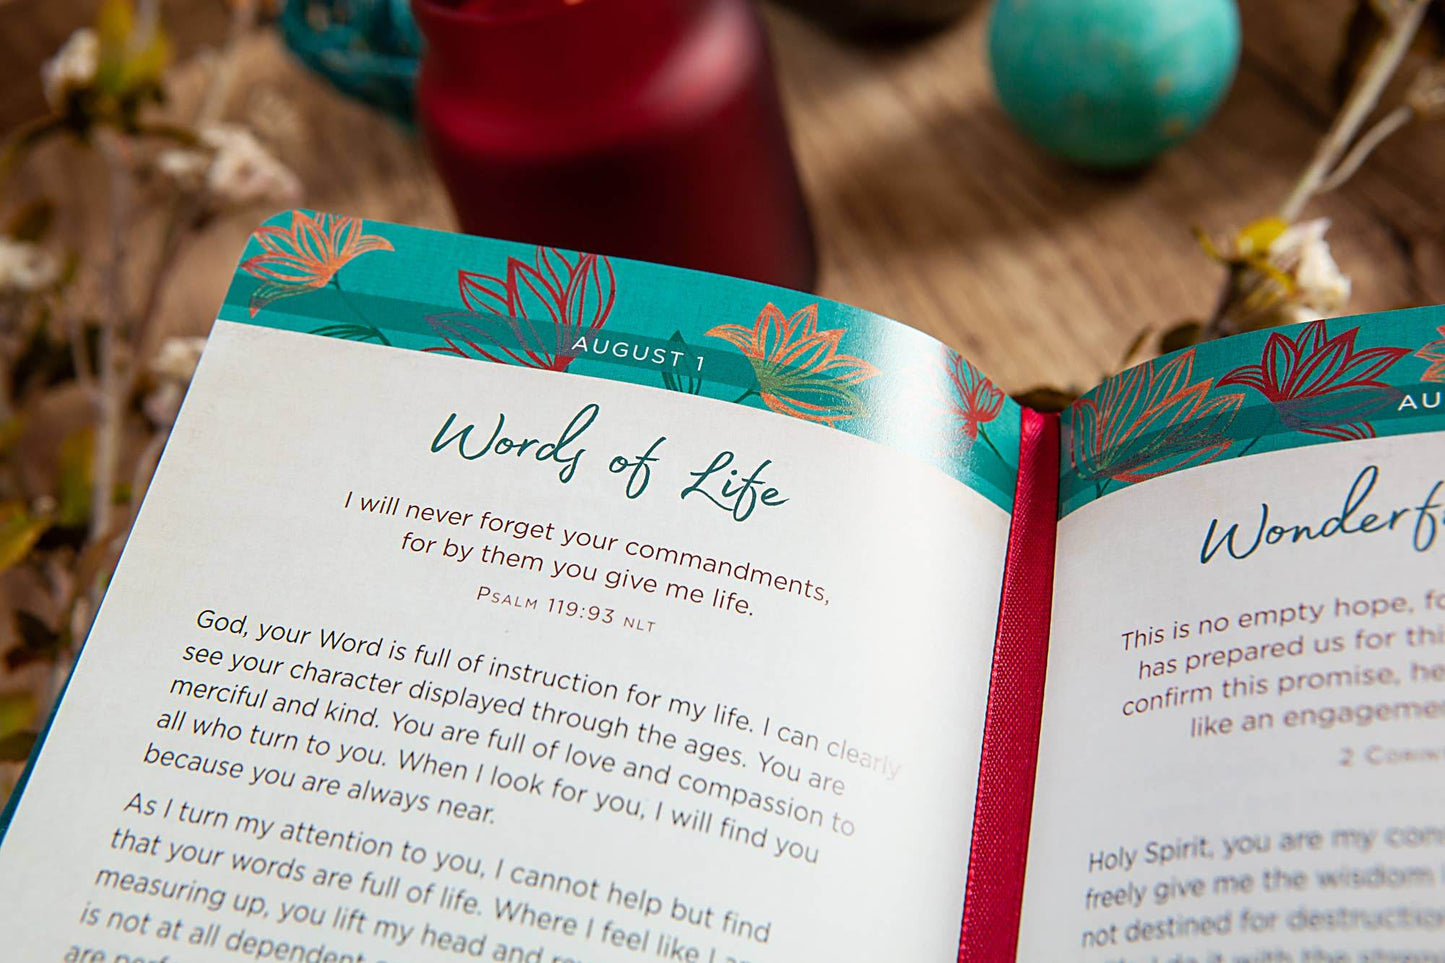 AUGUST 1
Words of Life
I will never forget your commandments,
for by them you give me life.
PSALM 119:93 NLT
God, your Word is full of instruction for my life. I can clearly
see your character displayed through the ages. You are
merciful and kind. You are full of love and compassion to
all who turn to you. When I look for you, I will find you
because you are always near.
As I turn my attention to you, I cannot help but find
that your words are full of life. Where I feel like I
measuring up, you lift my head and
is not at all dependent
are
AU
Wonderf
This is no empty hope, fo
has prepared us for thi
confirm this promise, he
like an engageme
2 Corin
Holy Spirit, you are my con
freely give me the wisdom
not destined for destructio
it with the